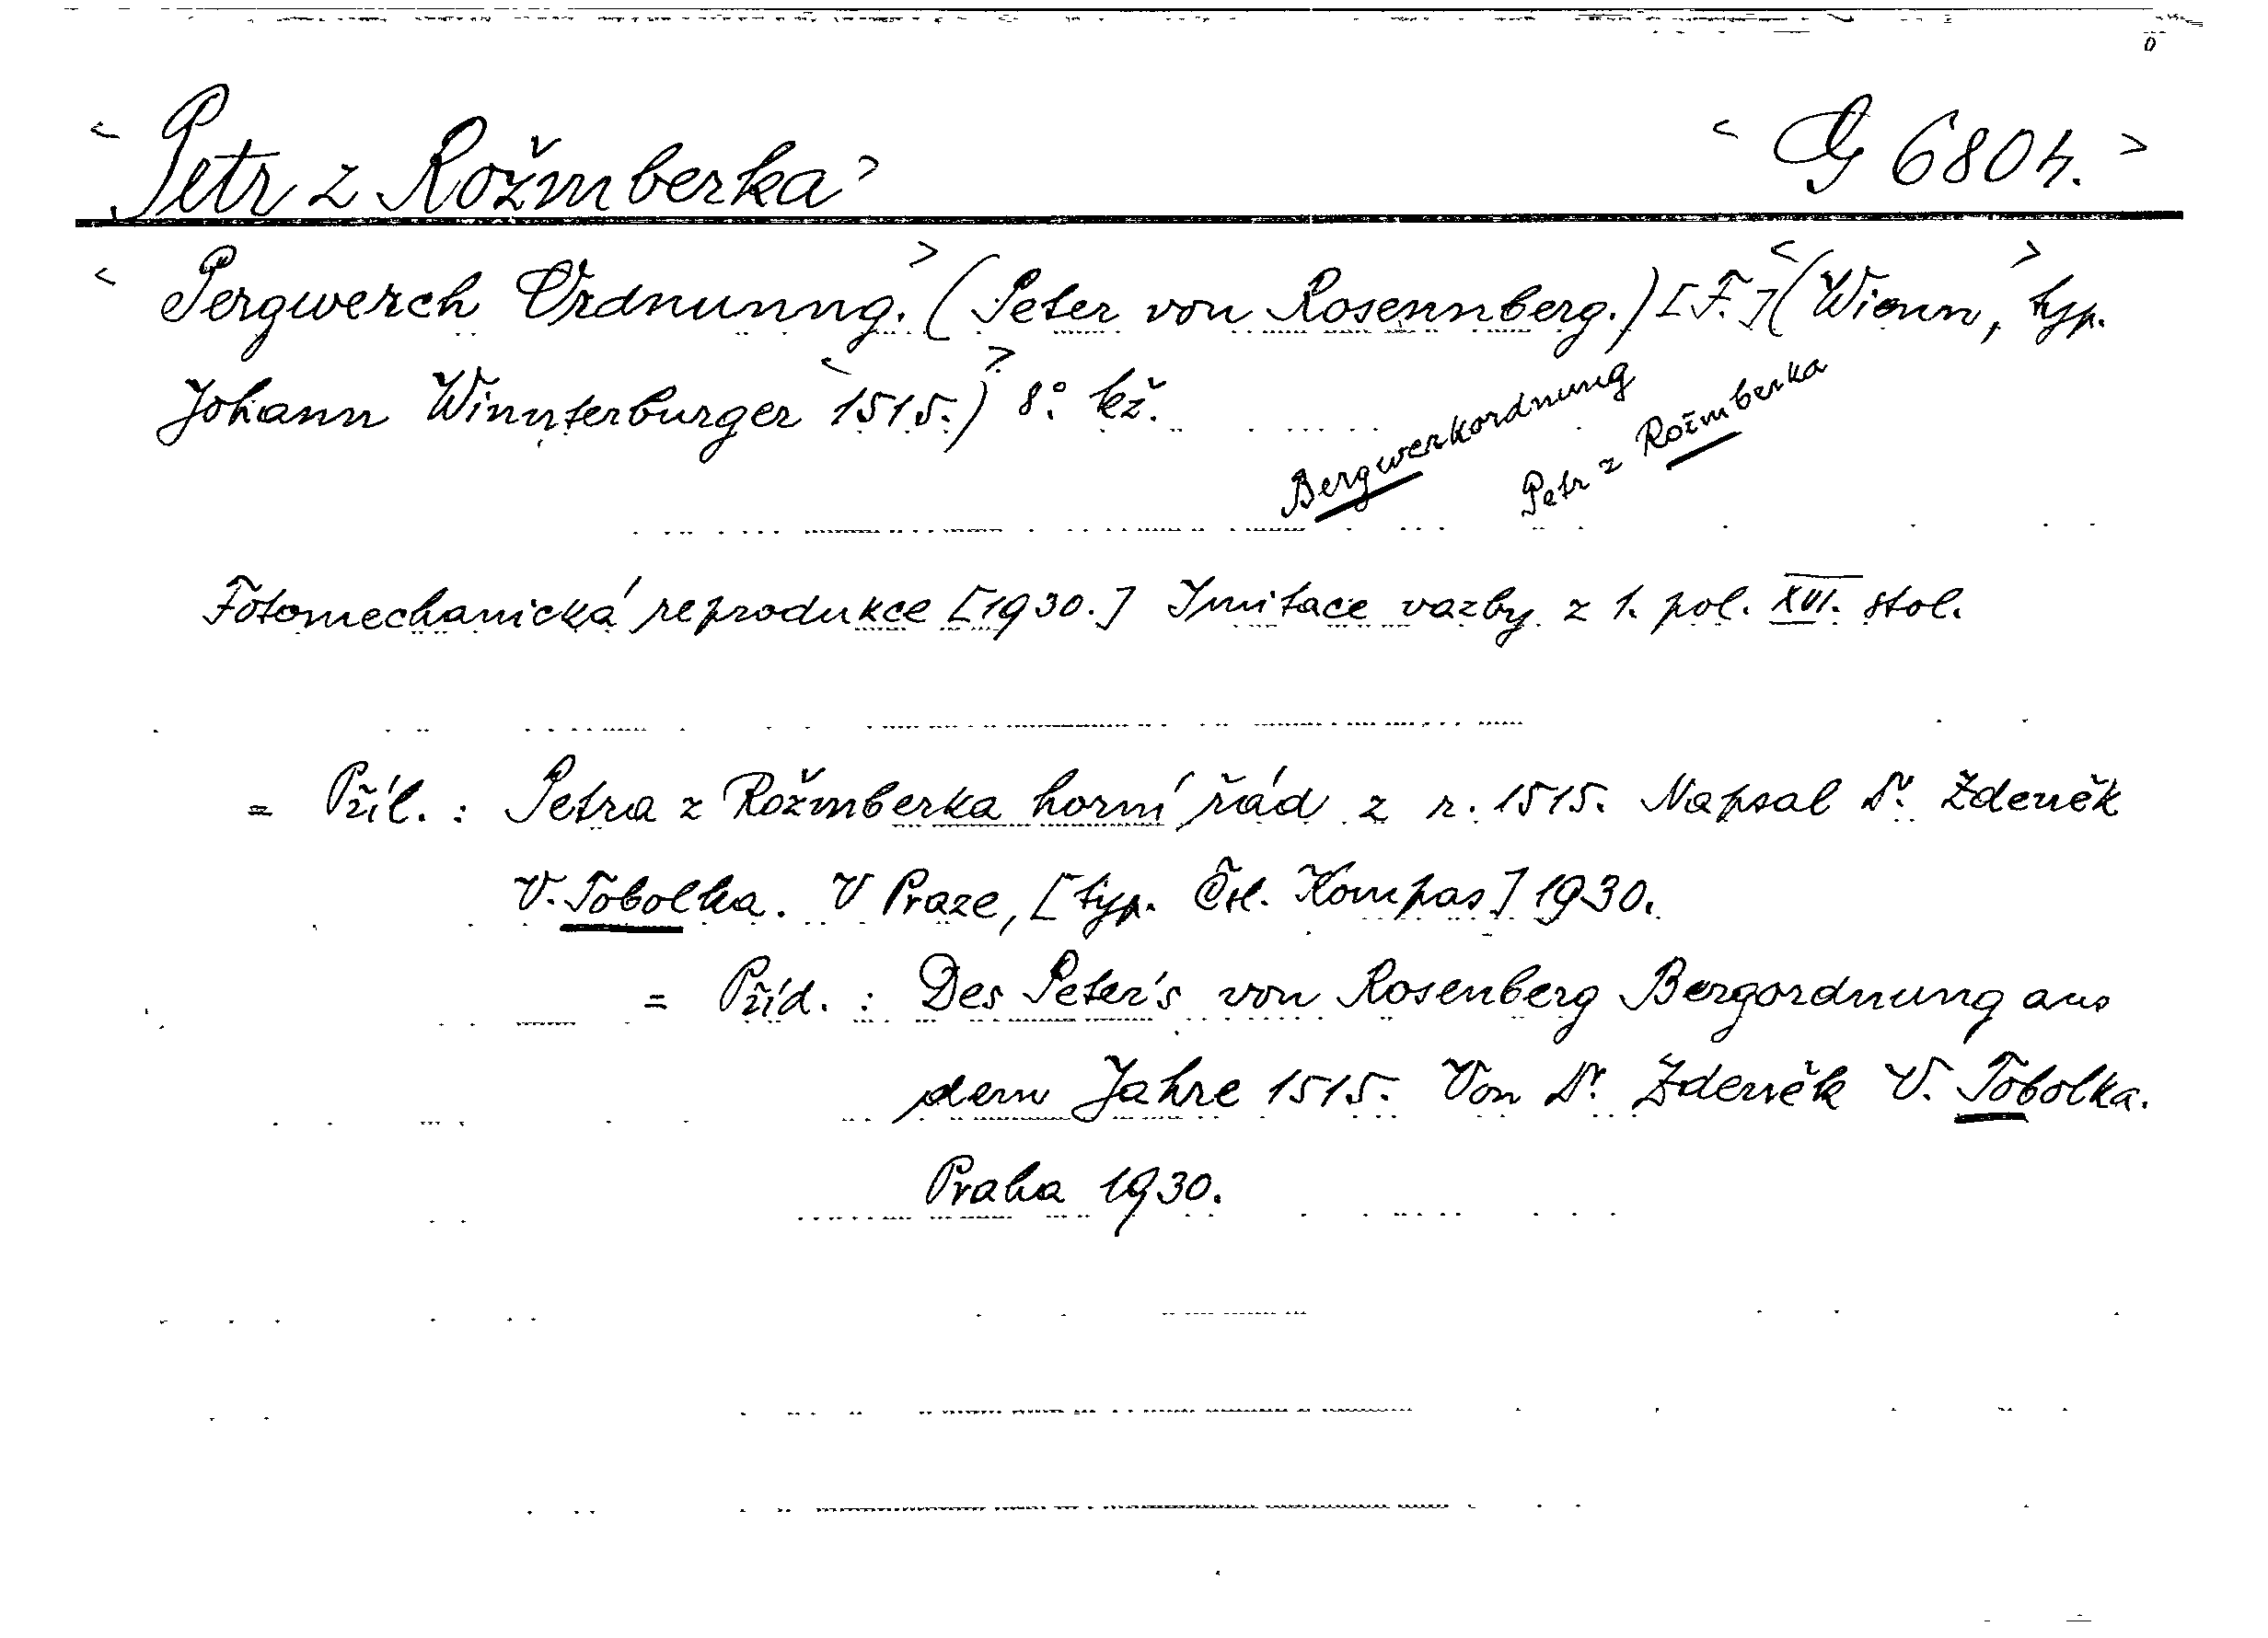 <Petr z Rožmberka> <G 6804.>
<Pergwerch Ordnunng.> (Peter von Rosennberg.) [F.] <(Wienn,> typ.
Johann Winnterburger <1515.)> 8°. kž.
Bergwerkordnung
Petr z Rožmberka
Fotomechanická reprodukce [1930.] Imitace vazby z 1. pol. XVI. stol.
= Příl. : Petra z Rožmberka horní řád z r. 1515. Napsal Dr. Zdeněk
V. Tobolka. V Praze, [typ. Čsl. Kompas] 1930.
= Příd. : Des Peter's von Rosenberg Bergordnung aus
dem Jahre 1515. Von Dr. Zdeněk V. Tobolka.
Praha 1930.